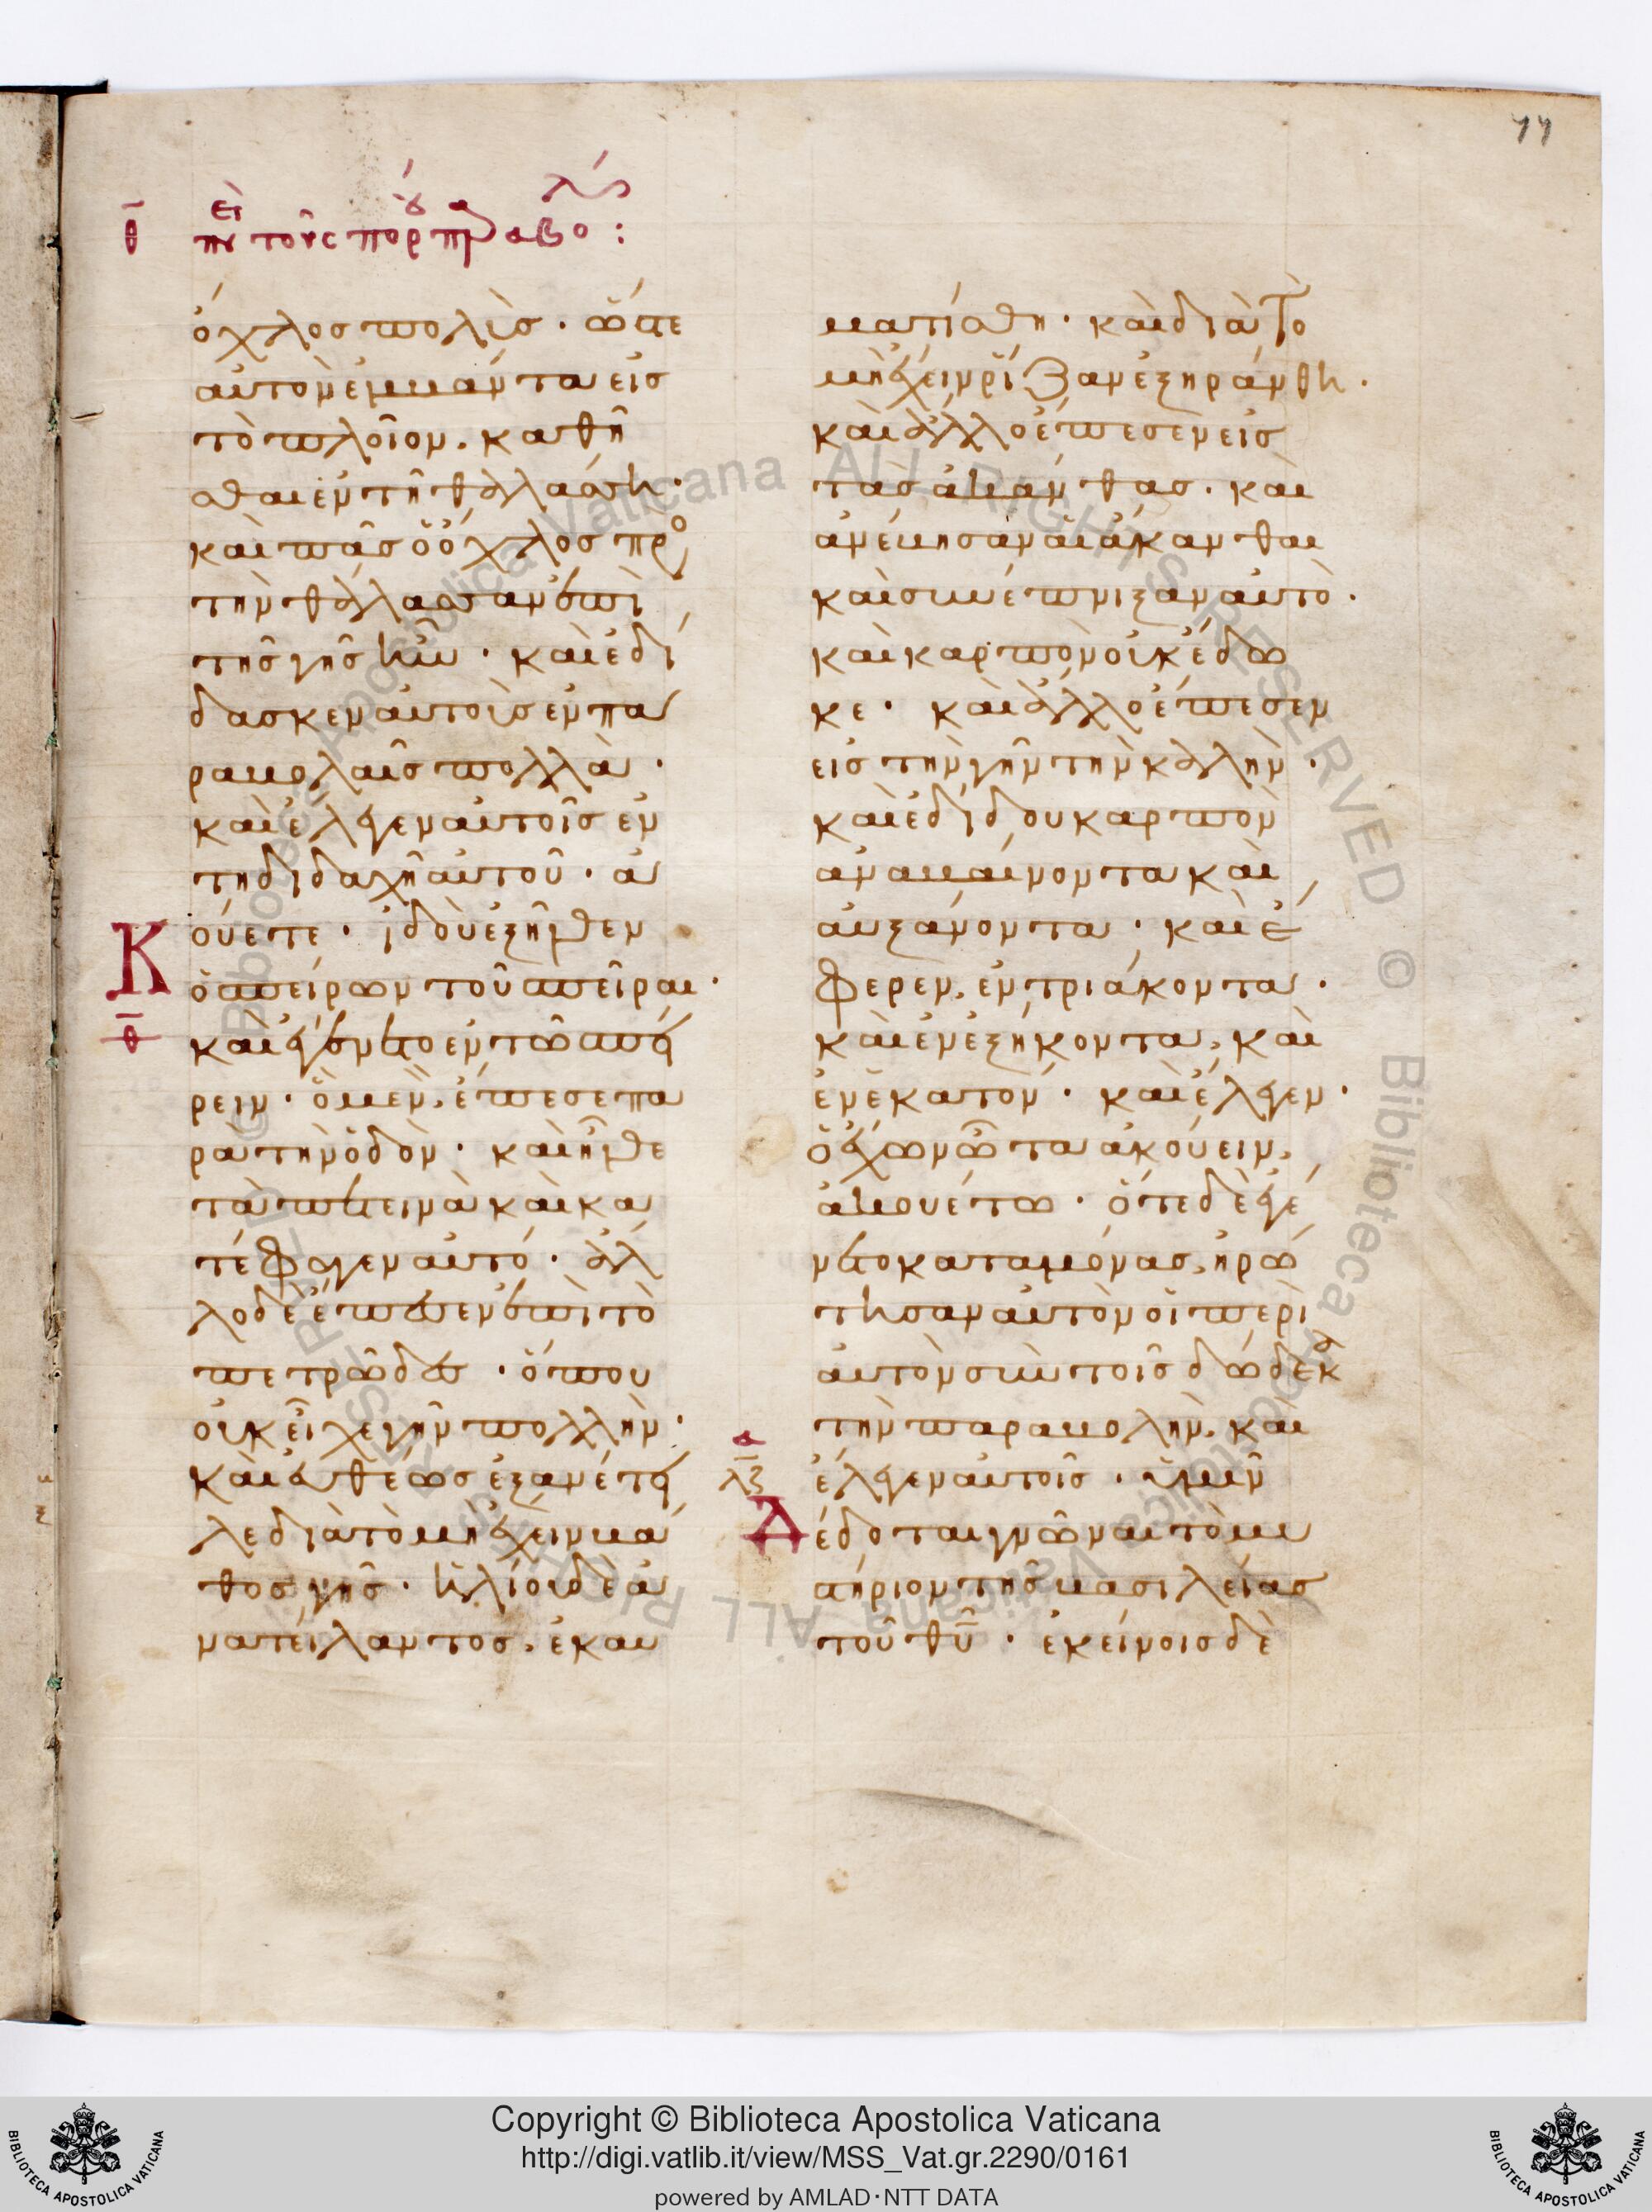 77
θ περὶ τοῦ σπόρου παραβολῆς :
ὄχλος πολὺς · ὥστε
αὐτὸν ἐμβάντα εἰς
τὸ πλοῖον, καθῆ
σθαι ἐν τῆ θαλάσση ·
καὶ πᾶς ὁ ὄχλος πρὸς
τὴν θάλασσαν ἐπὶ
τῆς γῆς ἦν · καὶ ἐδί
δασκεν αὐτοὺς ἐν πα
ραβολαῖς πολλὰ ·
καὶ ἔλεγεν αὐτοῖς ἐν
τῆ διδαχῆ αὐτοῦ · ἀ
Κούετε · ἰδοὺ ἐξῆλθεν
ὁ σπείρων τοῦ σπεῖραι ·
καὶ ἐγένετο ἐν τῶ σπεί
ρειν · ὃ μὲν, ἔπεσε πα
ρὰ τὴν ὁδὸν · καὶ ἦλθε
τὰ πετεινὰ καὶ κα
τέφαγεν αὐτό · ἄλ
λο δὲ ἔπεσεν ἐπὶ τὸ
πετρῶδες · ὅπου
οὐκ εἶχε γῆν πολλὴν ·
καὶ εὐθέως ἐξανέτει
λε διὰ τὸ μὴ ἔχειν βά
θος γῆς · ἡλίου δὲ ἀ
νατείλαντος, ἐκαυ
ματίσθη · καὶ διὰ τὸ
μὴ ἔχειν ῥίζαν ἐξηράνθη ·
καὶ ἄλλο ἔπεσεν εἰς
τὰς ἀκάνθας · καὶ
ἀνέβησαν αἱ ἄκανθαι
καὶ συνέπνιξαν αὐτὸ ·
καὶ καρπὸν οὐκ ἔδω
κε · καὶ ἄλλο ἔπεσεν
εἰς τὴν γῆν τὴν καλὴν ·
καὶ ἐδίδου καρπὸν
ἀναβαίνοντα καὶ
αὐξάνοντα · καὶ ἔ
φερεν, ἐν τριάκοντα ·
καὶ ἐν ἐξήκοντα, καὶ
ἐν ἑκατόν · καὶ ἔλεγεν ·
ὁ ἔχων ὦτα ἀκούειν,
ἀκουέτω · ὅτε δὲ ἐγέ
νετο καταμόνας, ἠρώ
τησαν αὐτὸν οἱ περὶ
αὐτὸν σὺν τοῖς δώδεκα
τὴν παραβολὴν, καὶ
λζ ἔλεγεν αὐτοῖς · ὑμῖν
Δέδοται γνῶναι τὸ μυ
στήριον τῆς βασιλείας
τοῦ θυ · ἐκείνοις δὲ
Copyright © Biblioteca Apostolica Vaticana
http://digi.vatlib.it/view/MSS_Vat.gr.2290/0161
powered by AMLAD·NTT DATA